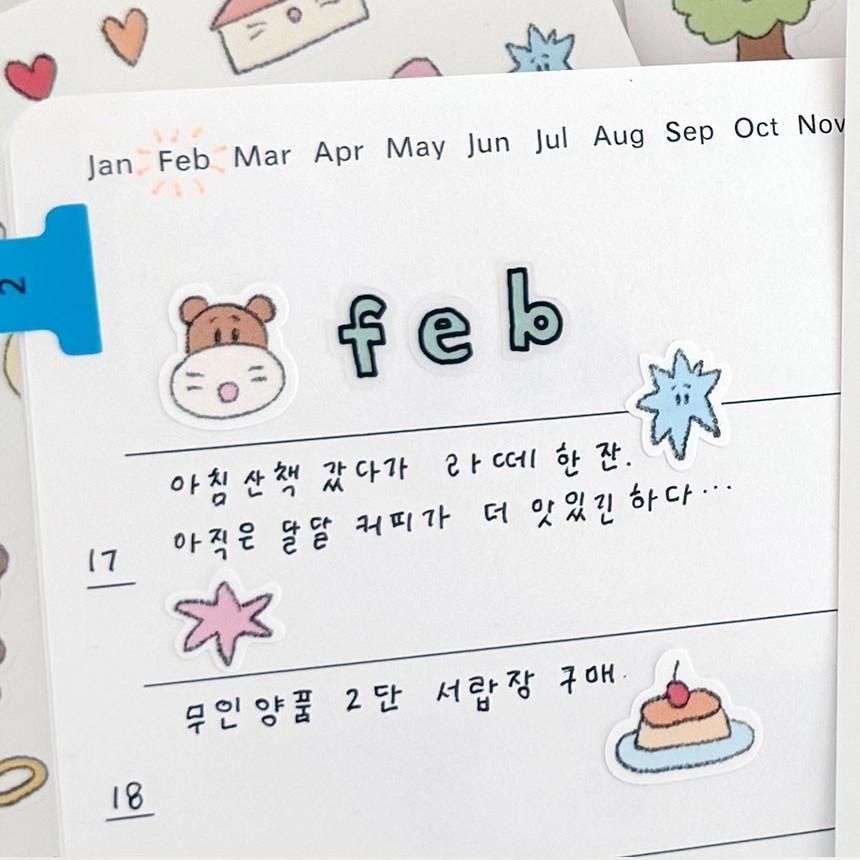 Jan Feb Mar Apr May Jun Jul Aug Sep Oct Nov
2
feb
아침 산책 갔다가 라떼 한 잔.
아직은 달달 커피가 더 맛있긴 하다...
17
무인양품 2단 서랍장 구매.
18